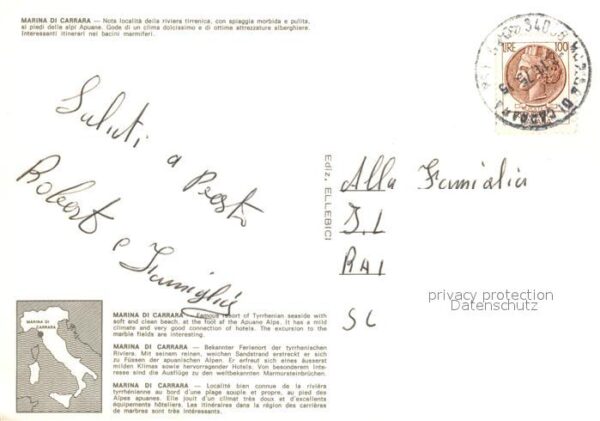 MARINA DI CARRARA — Nota località della riviera tirrenica, con spiaggia morbida e pulita,
ai piedi delle alpi Apuane. Gode di un clima dolcissimo e di ottime attrezzature alberghiere.
Interessanti itinerari nei bacini marmiferi.
LIRE 100
DI CARRARA
Saluti a Presto
Robert e Famiglia
Ediz. ELLEBICI
Alla Famiglia
privacy protection
Datenschutz
MARINA DI
CARRARA
MARINA DI CARRARA — Famous resort of Tyrrhenian seaside with
soft and clean beach, at the foot of the Apuane Alps. It has a mild
climate and very good connection of hotels. The excursion to the
marble fields are interesting.
MARINA DI CARRARA — Bekannter Ferienort der tyrrhenischen
Riviera. Mit seinem reinen, weichen Sandstrand erstreckt er sich
zu Füssen der apuanischen Alpen. Er erfreut sich eines äusserst
milden Klimas sowie hervorragender Hotels. Von besonderem Inte-
resse sind die Ausflüge zu den weltbekannten Marmorsteinbrüchen.
MARINA DI CARRARA — Localité bien connue de la rivièra
tyrrhénienne au bord d'une plage souple et propre, au pied des
Alpes apuanes. Elle jouit d'un climat très doux et d'excellents
équipements hôteliers. Les itinéraires dans la région des carrières
de marbres sont très intéressants.